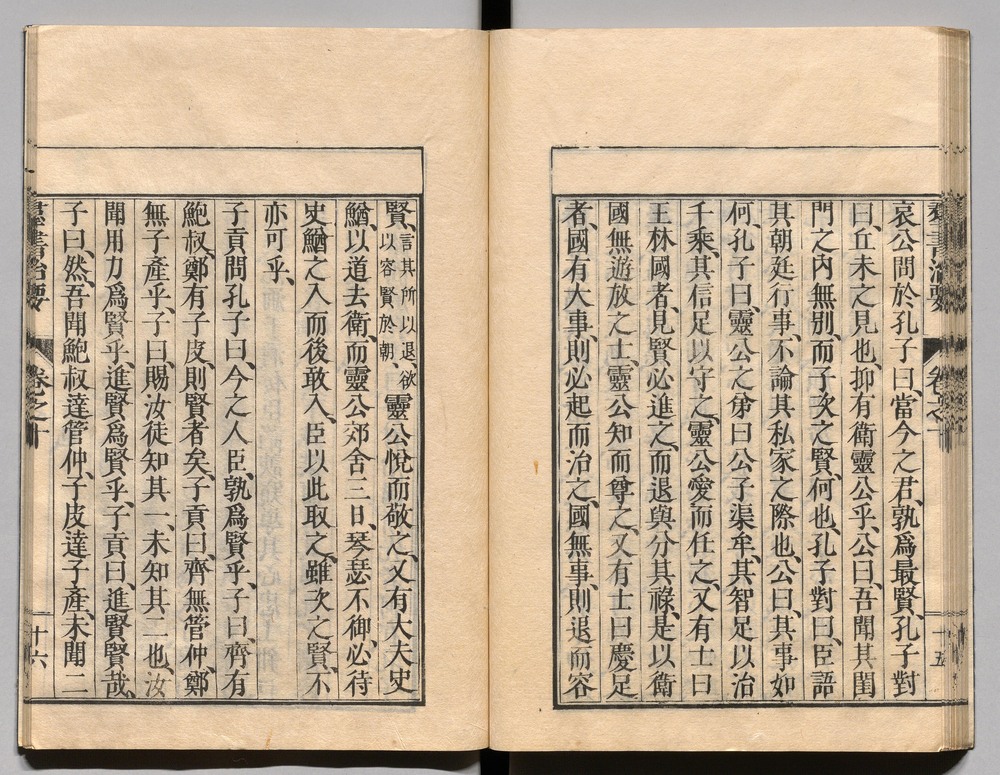 哀公問於孔子曰、當今之君、孰爲最賢、孔子對
曰、丘未之見也、抑有衛靈公乎、公曰、吾聞其閨
門之內無別、而子次之賢、何也、孔子對曰、臣語
其朝廷行事、不論其私家之際也、公曰、其事如
何、孔子曰、靈公之弟曰公子渠牟、其智足以治
千乘、其信足以守之、靈公愛而任之、又有士曰
王林國者、見賢必進之、而退與分其祿、是以衛
國無遊放之士、靈公知而尊之、又有士曰慶足
者、國有大事、則必起而治之、國無事、則退而容
賢、言其所以退、欲以容賢於朝、靈公悅而敬之、又有大夫史
鰌、以道去衛、而靈公郊舍三日、琴瑟不御、必待
史鰌之入而後敢入、臣以此取之、雖次之賢、不
亦可乎、
子貢問孔子曰、今之人臣、孰爲賢乎、子曰、齊有
鮑叔、鄭有子皮、則賢者矣、子貢曰、齊無管仲、鄭
無子產乎、子曰、賜、汝徒知其一、未知其二也、汝
聞用力爲賢乎、進賢爲賢乎、子貢曰、進賢賢哉、
子曰、然、吾聞鮑叔達管仲、子皮達子產、未聞二
羣書治要
卷之十
十六